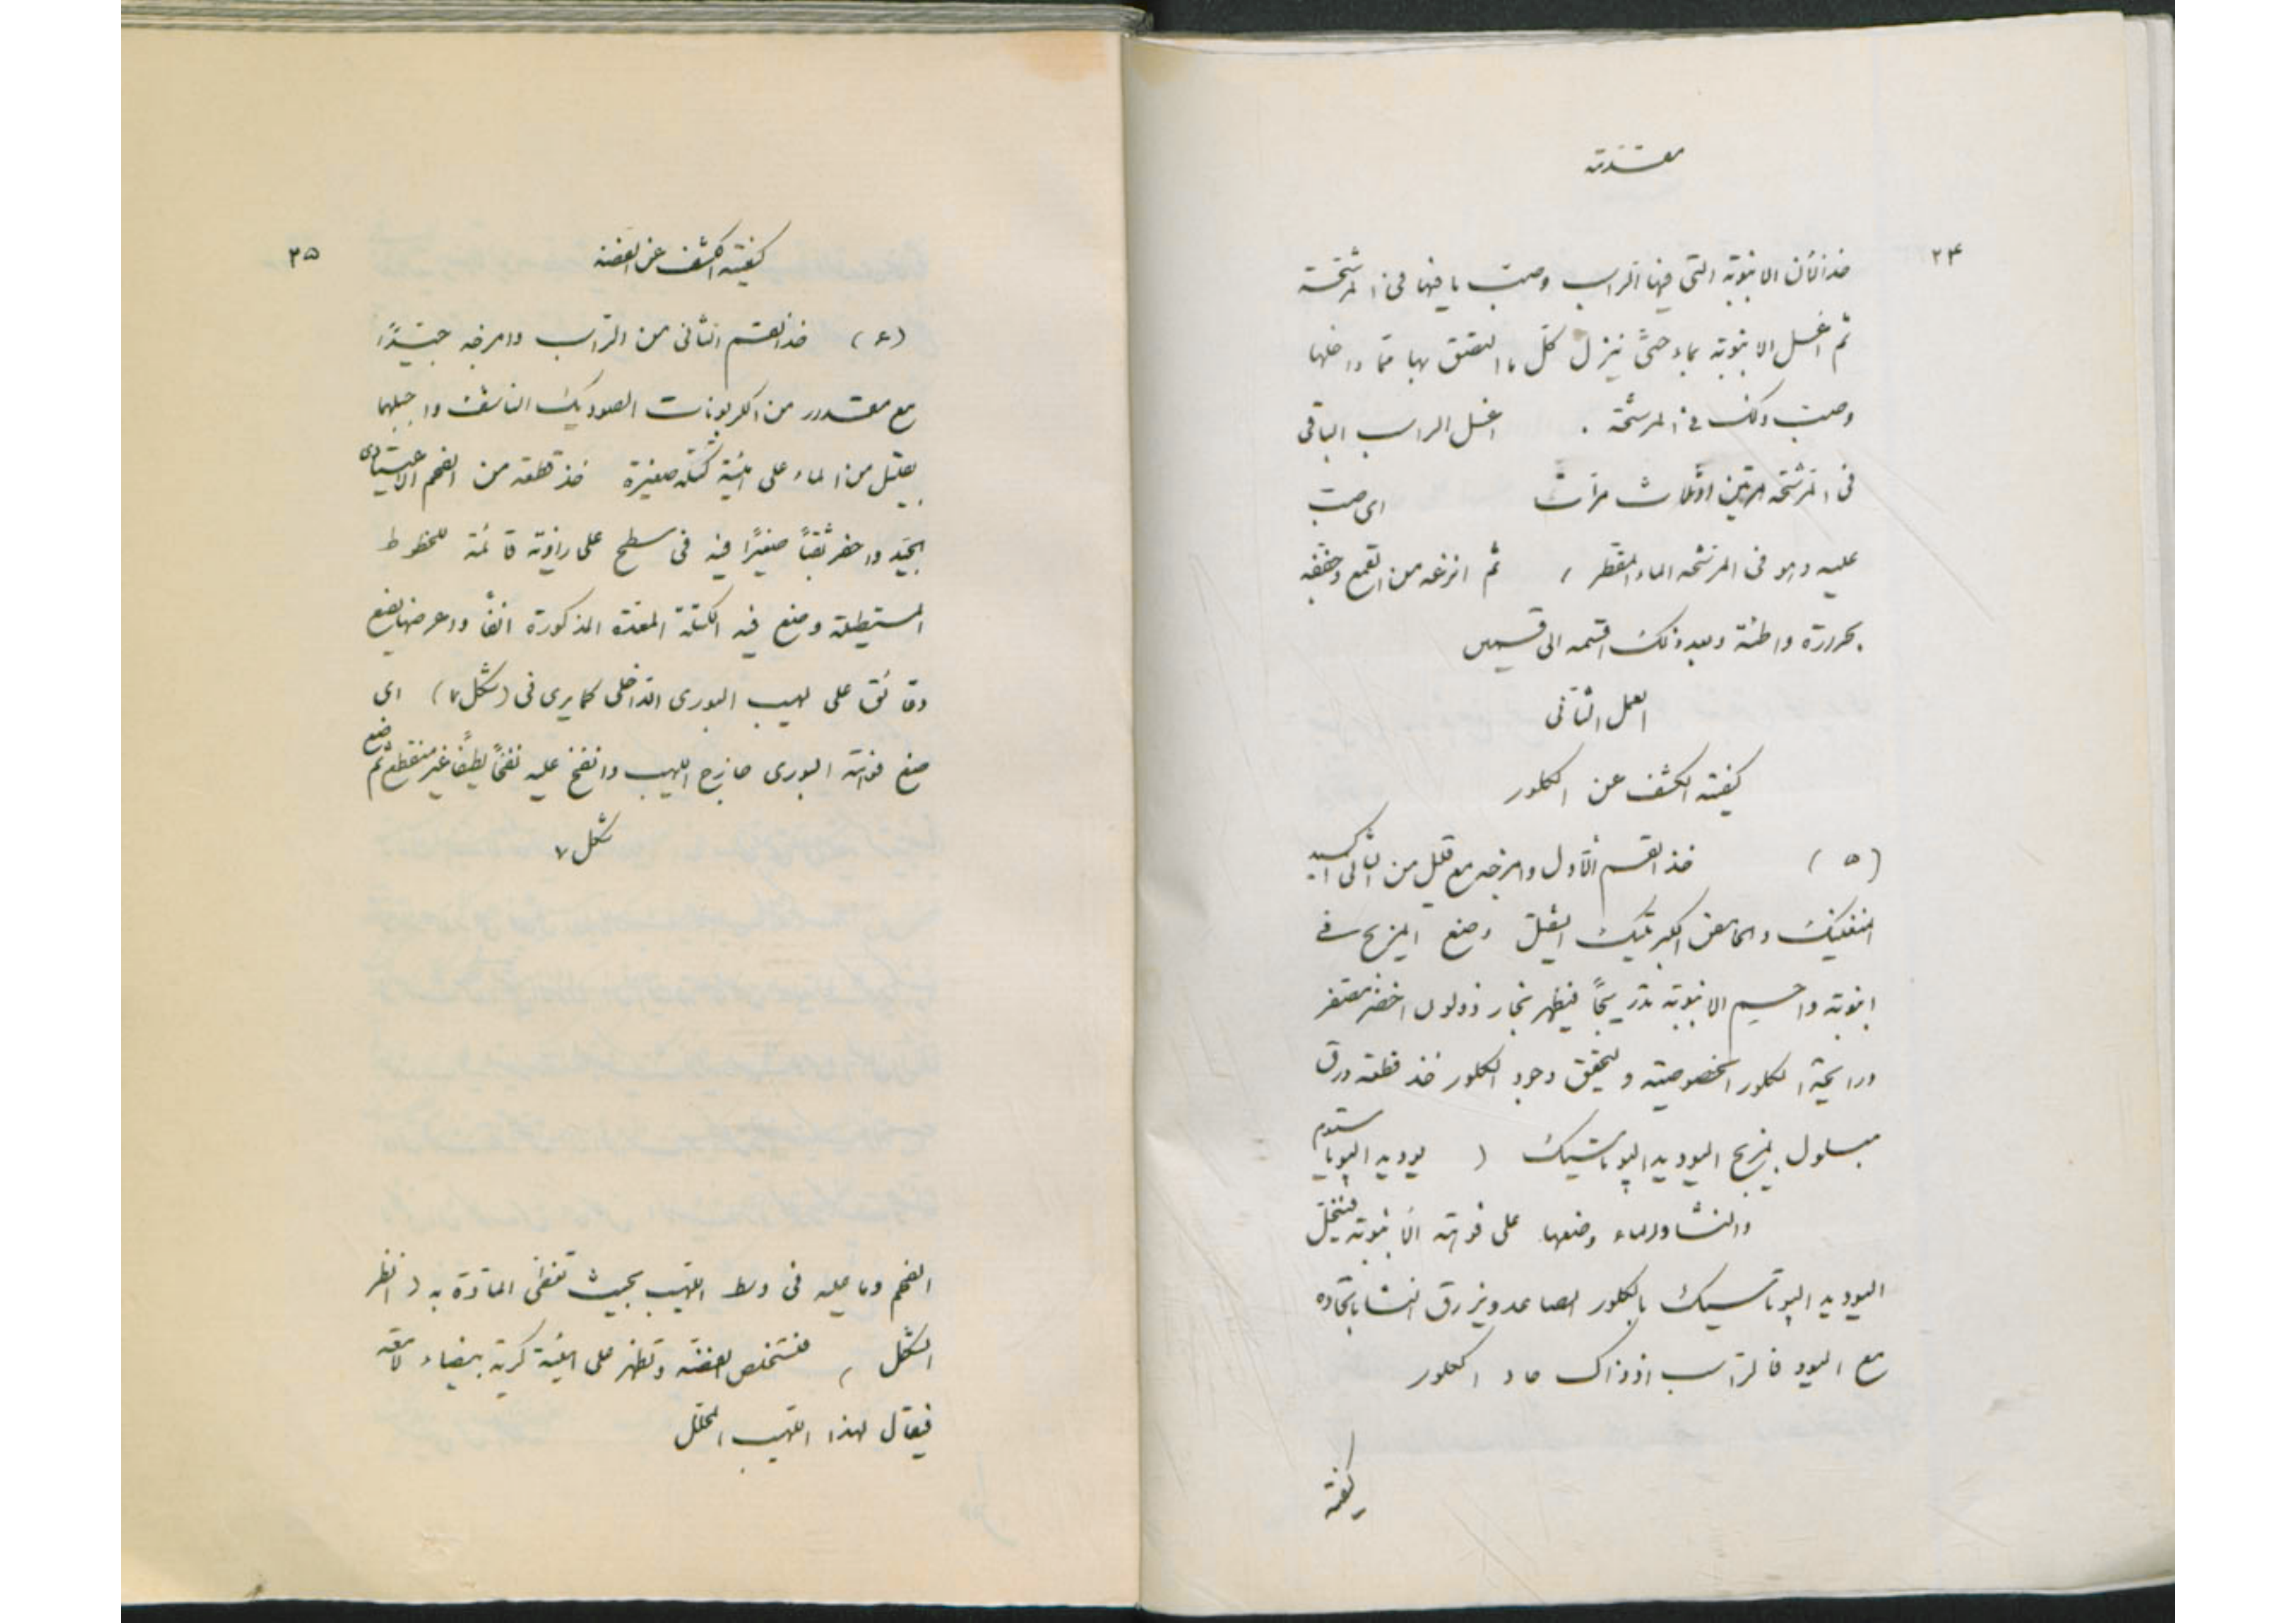 مقدمة
٢٤
خذ الآن الانبوبة التي فيها الراسب وصبّ ما فيها في المرشحة
ثم اغسل الانبوبة بماء حتى ينزل كلّ ما التصق بها ممّا داخلها
وصبّ ذلك في المرشحة . اغسل الراسب الباقى
فى المرشحة مرتين او ثلاث مرات اى صب
عليه وهو فى المرشحة الماء المقطر ، ثم انزعه من القمع وجففه
بحرارة واطئة وبعد ذلك اقسمه الى قسمين
العمل الثانى
كيفية الكشف عن الكلور
(٥) خذ القسم الأول وامزجه مع قليل من الثانى اكسيد
المنغنيك والحامض الكبرتيك الثقيل وضع المزيج في
انبوبة واحم الانبوبة تدريجاً فيظهر بخار ذو لون اخضر مصفر
ورايحة الكلور الخصوصية ولتحقق وجود الكلور خذ قطعة ورق
مبلول بمزيج اليوديد البوتاسيك ( يوديد البوتاسيوم
والنشا والماء وضعها على فوهة الانبوبة فينحل
اليوديد البوتاسيك بالكلور الصاعد ويزرق النشا باتحاده
مع اليود فالراسب اذ ذاك حاو الكلور
كيفية
كيفية الكشف عن الفضة
٢٥
(٦) خذ القسم الثانى من الراسب وامزجه جيّدًا
مع مقدار من الكربونات الصوديك الناشف واجبلهما
بقليل من الماء على هيئة كتلة صغيرة خذ قطعة من الفحم الاعتيادى
الجيّد واحفر ثقباً صغيرًا فيه فى سطح على زاوية قائمة للخطوط
المستطيلة وضع فيه الكتلة المعدة المذكورة انفاً واعرضها بضع
دقائق على لهيب البورى الداخلى كما يرى فى (شكل ٧) اى
ضع فوهة البورى خارج اللهيب وانفخ عليه نفخًا لطيفًا غير منقطع ثم ضع
شكل ٧
الفحم وما عليه فى وسط اللهيب بحيث تغطى المادة به ( انظر
الشكل ) فتستخلص الفضة وتظهر على هيئة كرية بيضاء لامعة
فيقال لهذا اللهيب المحلل